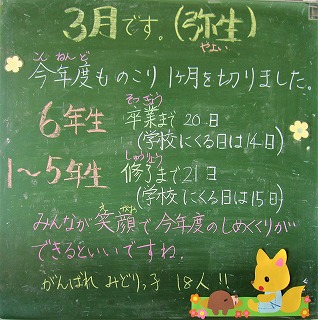 3月です。(弥生)
やよい
こんねんど
今年度ものこり1ヶ月を切りました。
そつぎょう
6年生 卒業まで20日
(学校にくる日は14日)
しゅうりょう
1〜5年生 修了まで21日
(学校にくる日は15日)
えがお
みんなが笑顔で今年度のしめくくりが
できるといいですね。
がんばれ みどりっ子 18人!!